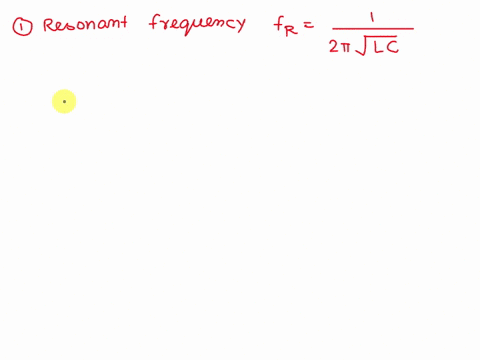 ① Resonant frequency f_R = 1 / 2π√LC